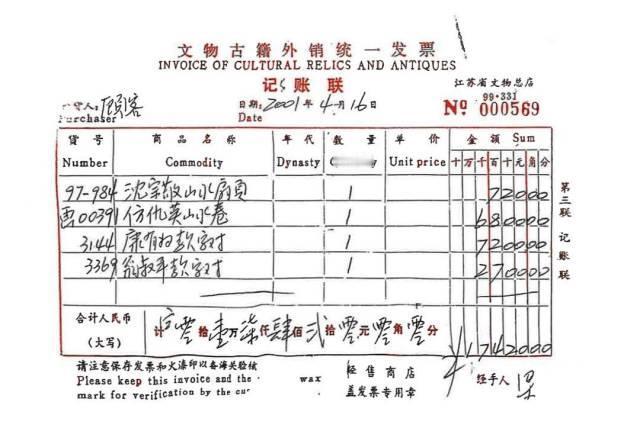 文物古籍外销统一发票
INVOICE OF CULTURAL RELICS AND ANTIQUES
记账联
江苏省文物总店
99·331
人: 顾客 日期: 2001年4月16 Nº 000569
Purchaser Date
货号 商品名称 年代 数量 单价 金额 Sum
Number Commodity Dynasty Unit price 十万千百十元角分
97-984 沈宗敬山水扇页 1 72000
00391 仿仇英山水卷 1 680000
3144 康有为款字对 1 720000
3369 翁叔平款字对 1 270000
合计人民币 计 零拾壹万柒仟肆佰贰拾零元零角零分
(大写) ¥1742000
请注意保存发票和火漆印以备海关验核 经售商店 经手人
Please keep this invoice and the wax 盖发票专用章
mark for verification by the
第三联 记账联